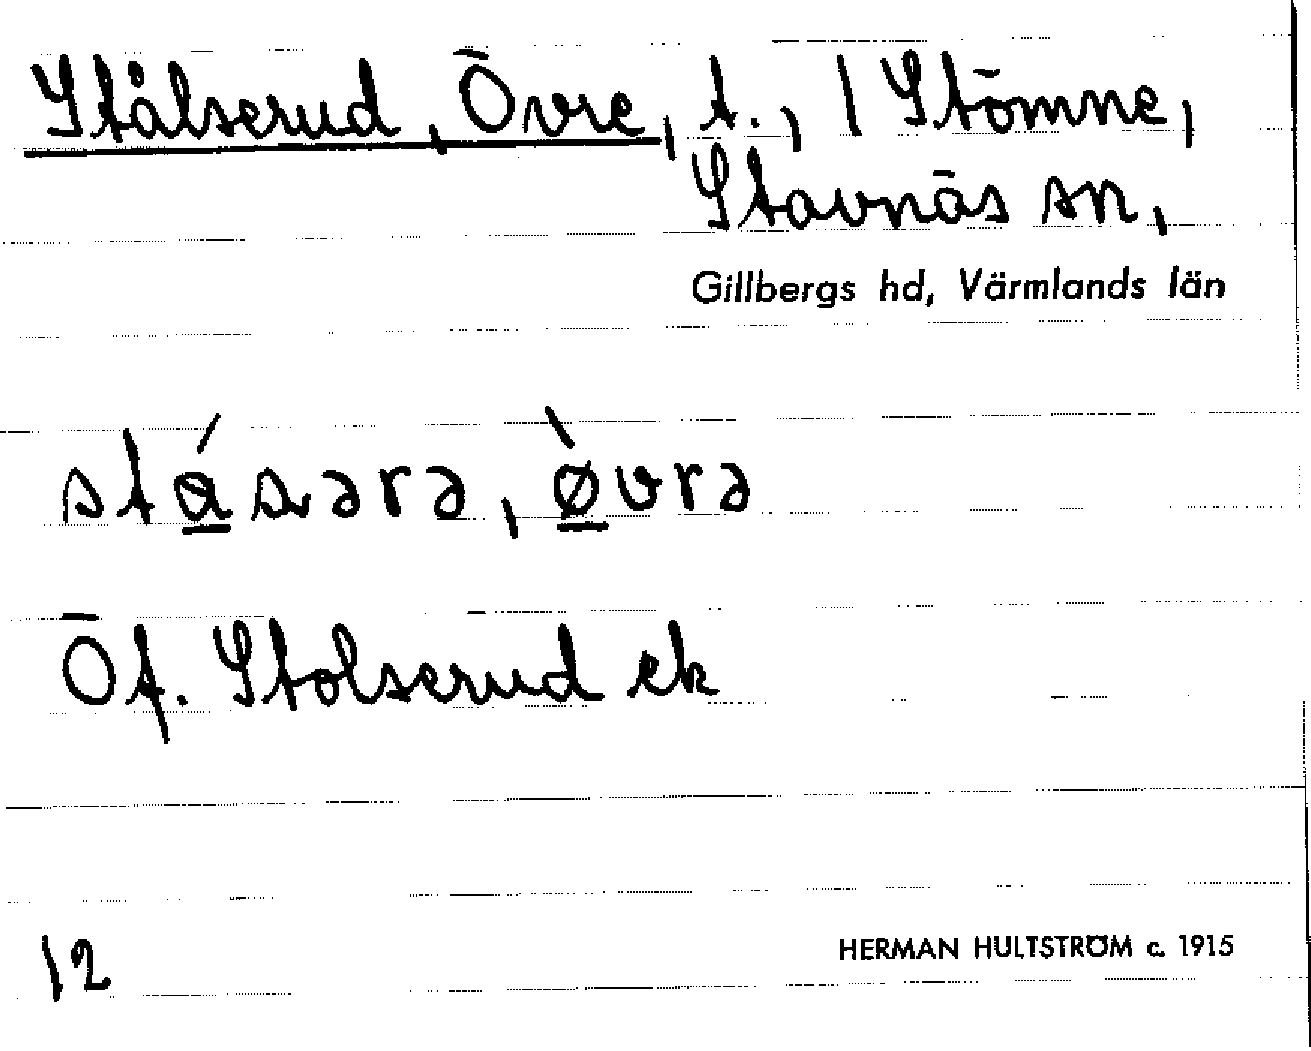 Stålserud, Övre, t., 1 Stömne,
Stavnäs sn,
Gillbergs hd, Värmlands län
stásərə, ø̀vrə
Öf. Stolserud ek
12
HERMAN HULTSTRÖM c. 1915